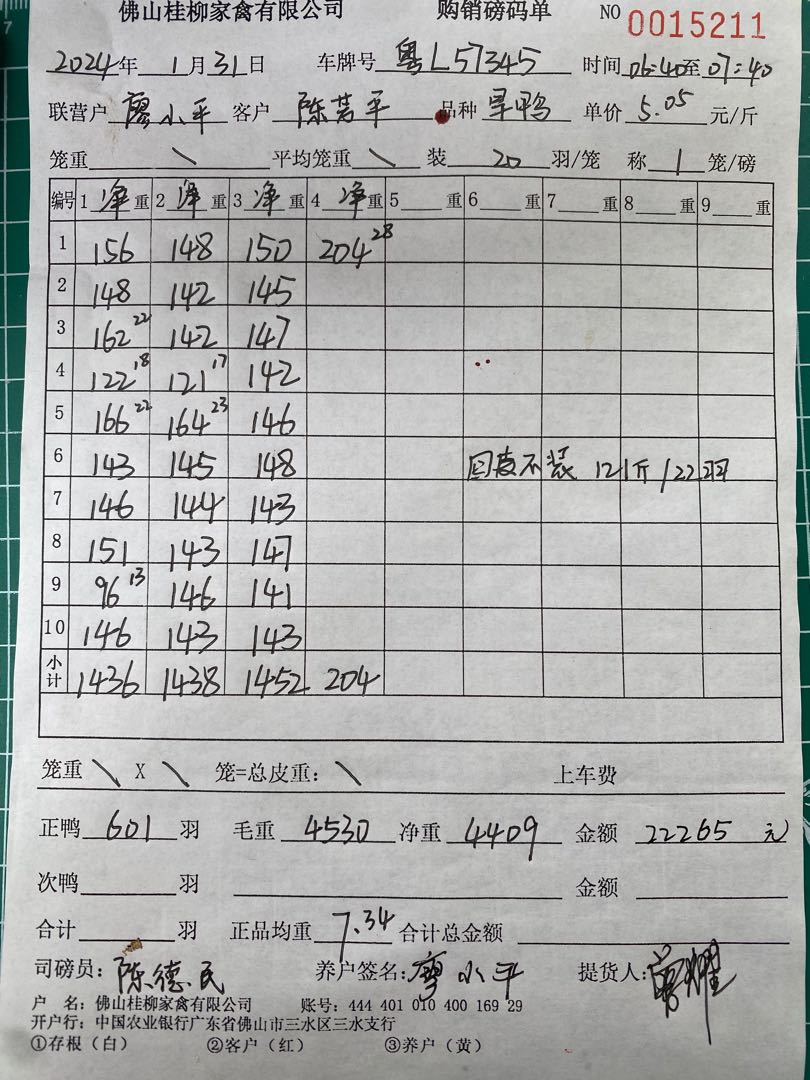 佛山桂柳家禽有限公司 购销磅码单 NO 0015211
2024年 1月31日 车牌号 粤L57345 时间06:40至07:40
联营户 廖小平 客户 陈芳平 品种 旱鸭 单价 5.05 元/斤
笼重 \ 平均笼重 \ 装 20 羽/笼 称 1 笼/磅
编号 1 净 重 2 净 重 3 净 重 4 净 重 5 重 6 重 7 重 8 重 9 重
1 156 148 150 204 28
2 148 142 145
3 162 22 142 147
4 122 18 121 17 142
5 166 22 164 23 146
6 143 145 148 回度不装 121斤/22羽
7 146 144 143
8 151 143 147
9 96 13 146 141
10 146 143 143
小计 1436 1438 1452 204
笼重 \ X \ 笼=总皮重: \ 上车费
正鸭 601 羽 毛重 4530 净重 4409 金额 22265 元
次鸭 羽 金额
合计 羽 正品均重 7.34 合计总金额
司磅员: 陈德民 养户签名: 廖小平 提货人:
户 名: 佛山桂柳家禽有限公司 账号: 444 401 010 400 169 29
开户行: 中国农业银行广东省佛山市三水区三水支行
①存根(白) ②客户(红) ③养户(黄)